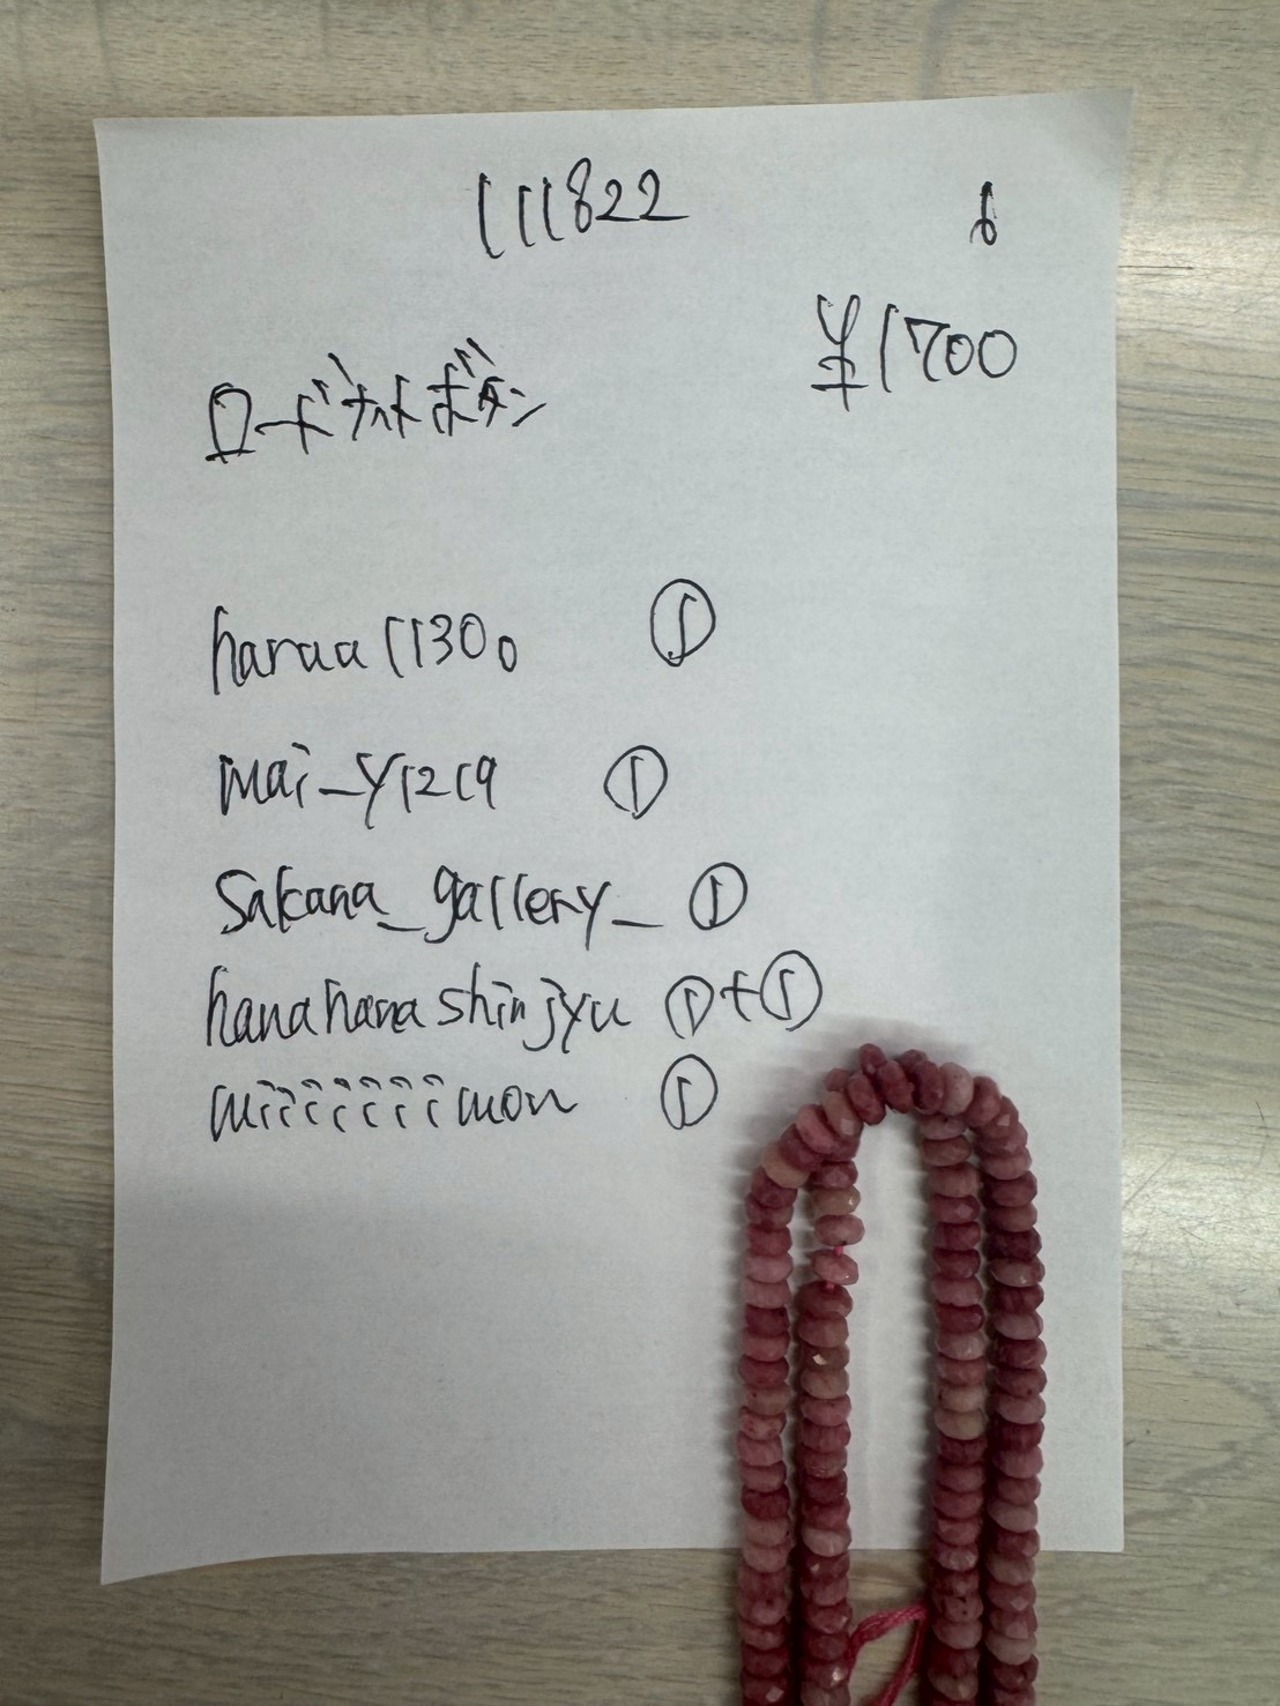 111822 6
¥1700
ロードナイトボタン
haruu11300 ①
mai_y1219 ①
Sakana_gallery_ ①
hanahanashinjyu ①+①
miiiiiiimon ①